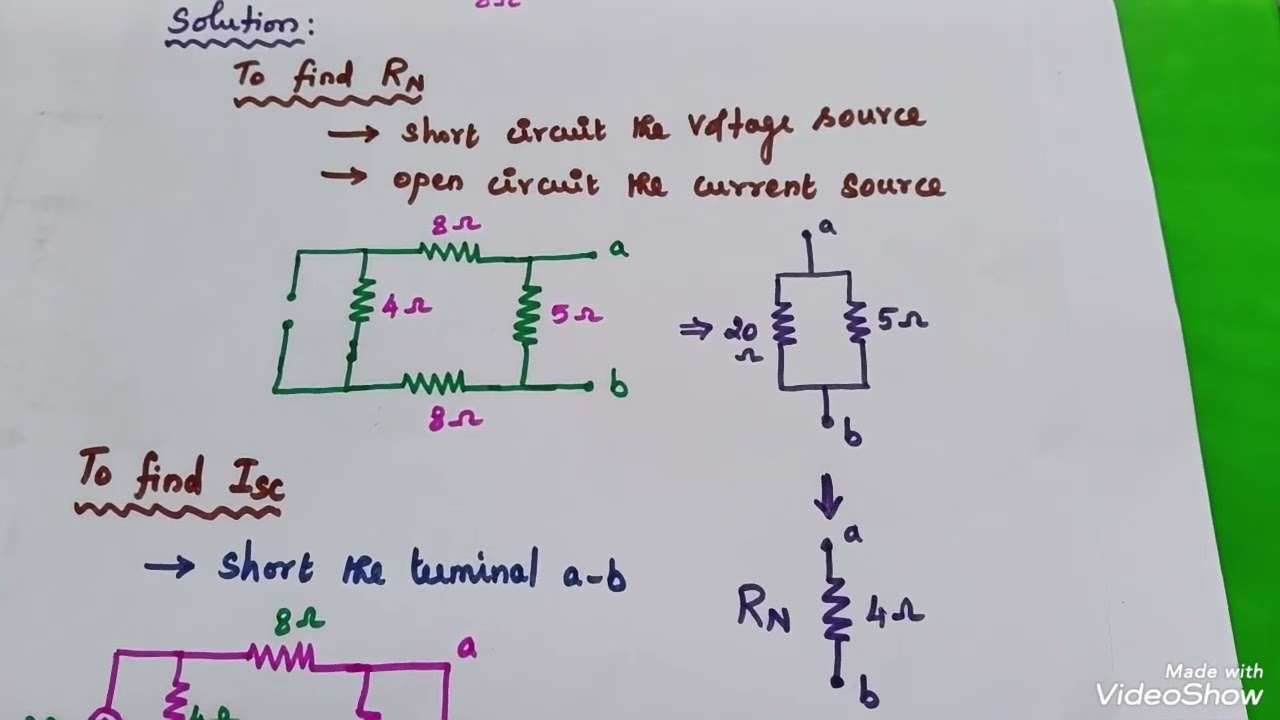 8Ω
Solution:
To find RN
→ short circuit the voltage source
→ open circuit the current source
8Ω
a
4Ω
5Ω
b
8Ω
a
⇒ 20
Ω
5Ω
b
a
RN
4Ω
b
To find ISC
→ short the terminal a-b
8Ω
a
4Ω
Made with
VideoShow